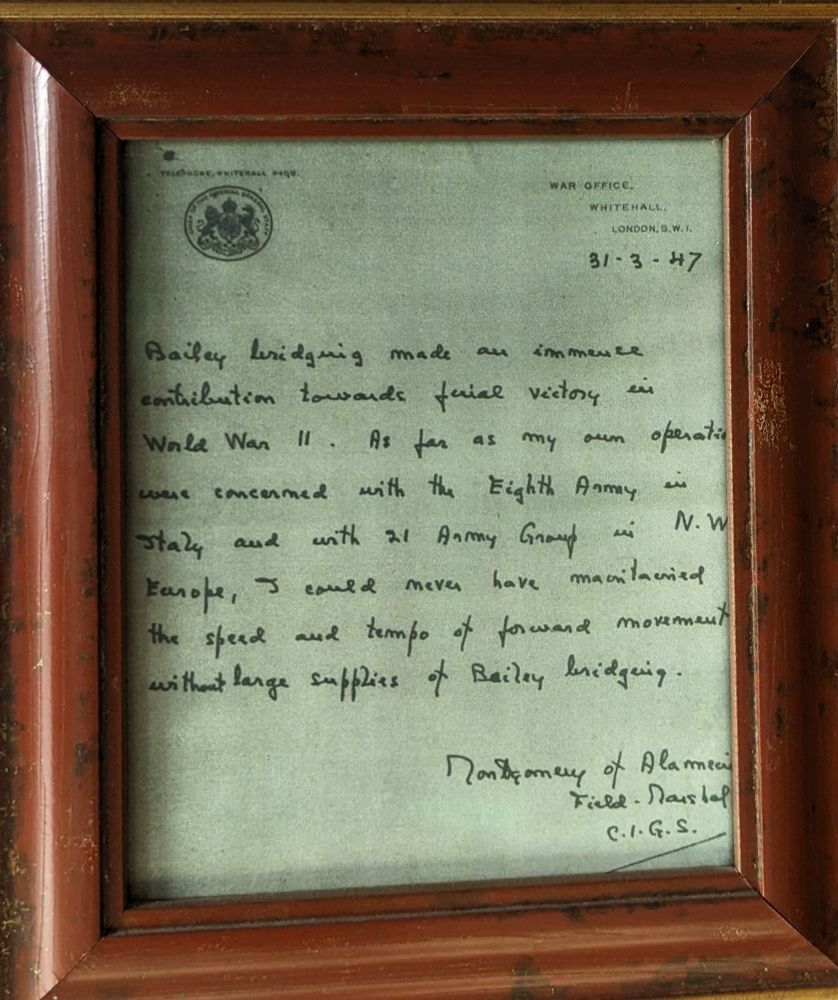 TELEPHONE, WHITEHALL 9400.
CHIEF OF THE IMPERIAL GENERAL STAFF
WAR OFFICE,
WHITEHALL,
LONDON, S.W.1.
31-3-47
Bailey bridging made an immence
contribution towards final victory in
World War II. As far as my own operatio
were concerned with the Eighth Army in
Italy and with 21 Army Group in N.W
Europe, I could never have maintained
the speed and tempo of forward movement
without large supplies of Bailey bridging.
Montgomery of Alamein
Field-Marshal
C.I.G.S.